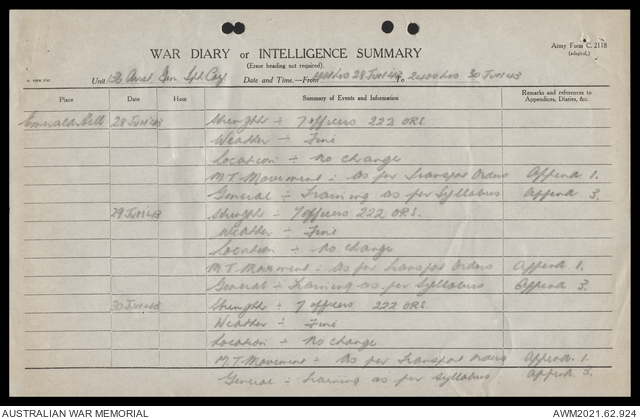 WAR DIARY or INTELLIGENCE SUMMARY
(Erase heading not required).
Army Form C. 2118
(adapted.)
Unit Aust Gen Spt Coy Date and Time.—From hrs 28 Jun 43 To 2400 hrs 30 Jun 43
Place Date Hour Summary of Events and Information Remarks and references to Appendices, Diaries, &c.
28 Jun 43 Strength ÷ 7 officers 222 ORS.
Weather ÷ Fine
Location ÷ No change
M.T. Movement ÷ As per Transport Orders Append 1.
General ÷ Training as per Syllabus Append 3.
29 Jun 43 Strength ÷ 7 officers 222 ORS.
Weather ÷ Fine
Location ÷ No change
M.T. Movement ÷ As per Transport Orders Append 1.
General ÷ Training as per Syllabus Append 3.
30 Jun 43 Strength ÷ 7 officers 222 ORS.
Weather ÷ Fine
Location ÷ No change
M.T. Movement ÷ As per Transport Orders Append. 1.
General ÷ Training as per Syllabus Append. 3.
AUSTRALIAN WAR MEMORIAL
AWM2021.62.924